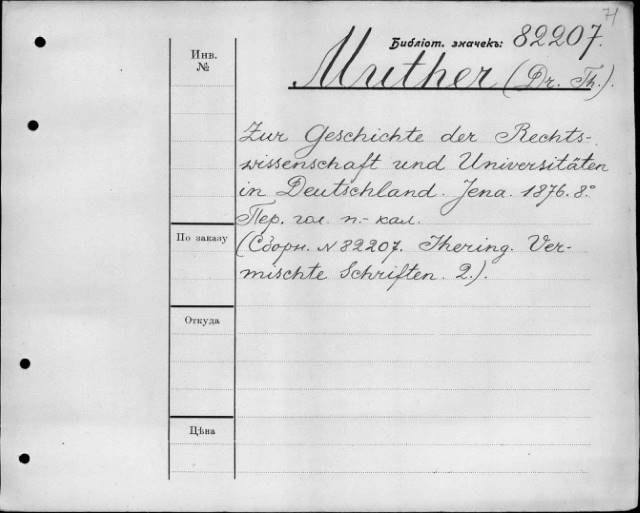 71
Библіот. значекъ: 82207.
Инв.
№
Muther (Dr. Th.).
Zur Geschichte der Rechts-
wissenschaft und Universitäten
in Deutschland. Jena. 1876. 8.°
Пер. гол. п.-кал.
По заказу
(Сборн. № 82207. Ihering. Ver-
mischte Schriften. 2.).
Откуда
Цѣна